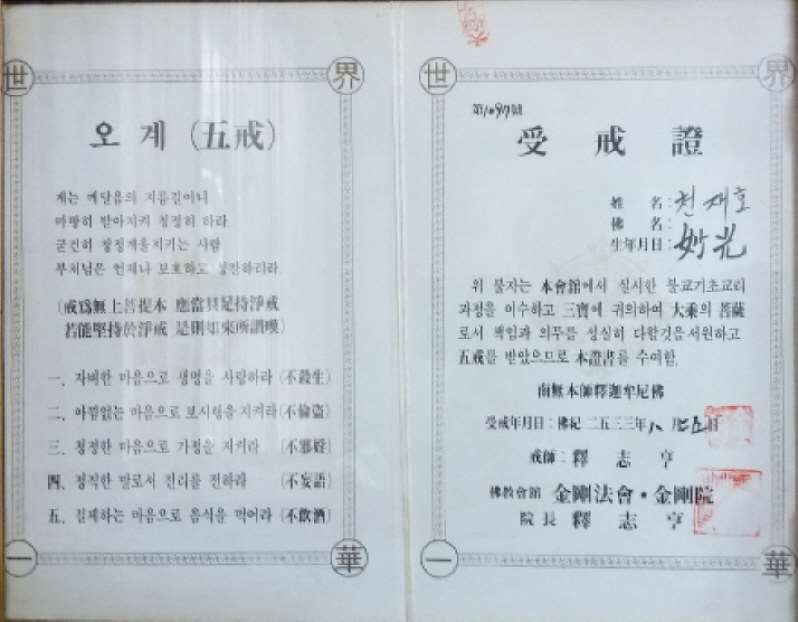 世 界
오 계 (五戒)
계는 깨달음의 지름길이니
마땅히 받아지켜 청정히 하라
굳건히 청정계율지키는 사람
부처님은 언제나 보호하고 칭찬하리라
(戒爲無上菩提本 應當具足持淨戒
若能堅持於淨戒 是則如來所讚嘆)
一. 자비한 마음으로 생명을 사랑하라 (不殺生)
二. 아낌없는 마음으로 보시행을 지켜라 (不偸盜)
三. 청정한 마음으로 가정을 지켜라 (不邪婬)
四. 정직한 말로서 진리를 전하라 (不妄語)
五. 절제하는 마음으로 음식을 먹어라 (不飮酒)
一 華
世 界
受 戒 證
姓 名: 천재호
佛 名:
生年月日: 妙光
위 불자는 本會館에서 실시한 불교기초교리
과정을 이수하고 三寶에 귀의하여 大乘의 菩薩
로서 책임과 의무를 성실히 다할것을서원하고
五戒를 받았으므로 本證書를 수여함.
南無本師釋迦牟尼佛
受戒年月日: 佛紀 二五三三年 八 月 日
戒師: 釋 志 亨
佛敎會館 金剛法會·金剛院
院長 釋 志 亨
一 華